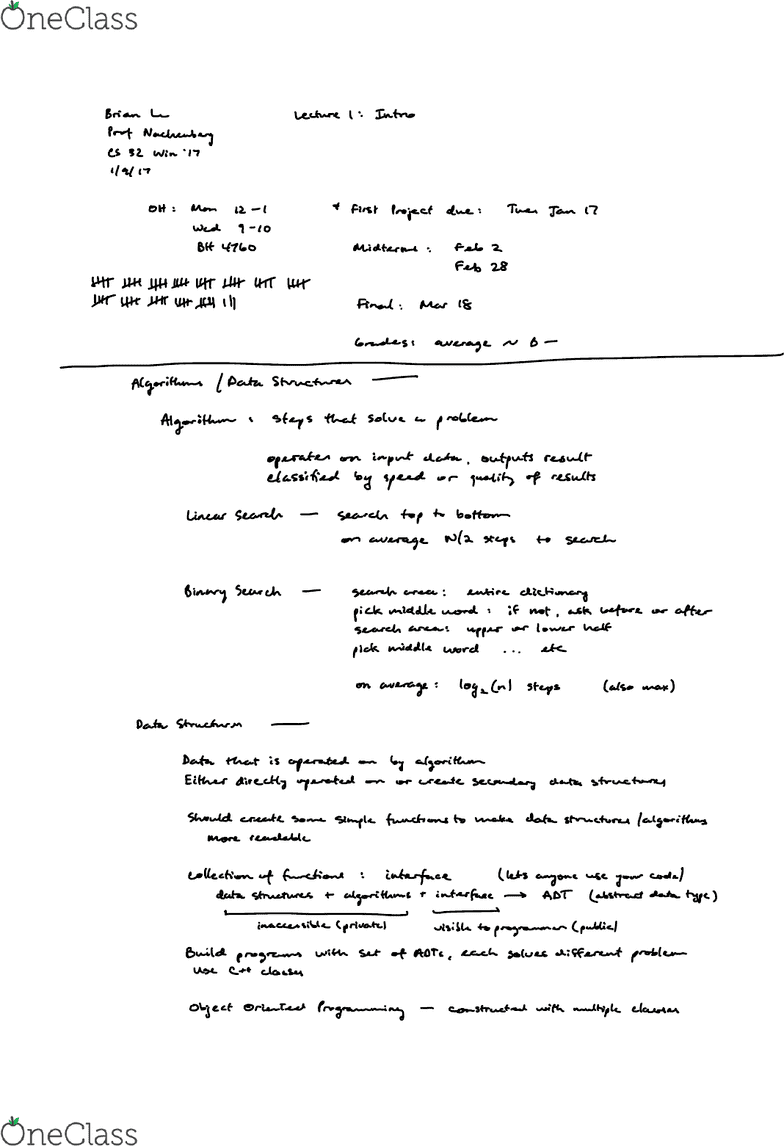 OneClass
Brian Le
Lecture 1: Intro
Prof Nachenberg
CS 32 Win '17
1/9/17
OH: Mon 12-1
* First Project due: Tues Jan 17
Wed 9-10
BH 4760
Midterms: Feb 2
Feb 28
Final: Mar 18
Grades: average ~ B-
Algorithms / Data Structures —
Algorithm: steps that solve a problem
operates on input data, outputs result
classified by speed or quality of results
Linear Search — search top to bottom
on average N/2 steps to search
Binary Search — search area: entire dictionary
pick middle word: if not, ask before or after
search area: upper or lower half
pick middle word ... etc
on average: log₂(n) steps (also max)
Data Structures —
Data that is operated on by algorithm
Either directly operated on or create secondary data structures
Should create some simple functions to make data structures/algorithms
more readable
Collection of functions: interface (lets anyone use your code)
data structures + algorithms + interface → ADT (abstract data type)
inaccessible (private) visible to programmer (public)
Build programs with set of ADTs, each solves different problem
use C++ classes
Object Oriented Programming — constructed with multiple classes
OneClass